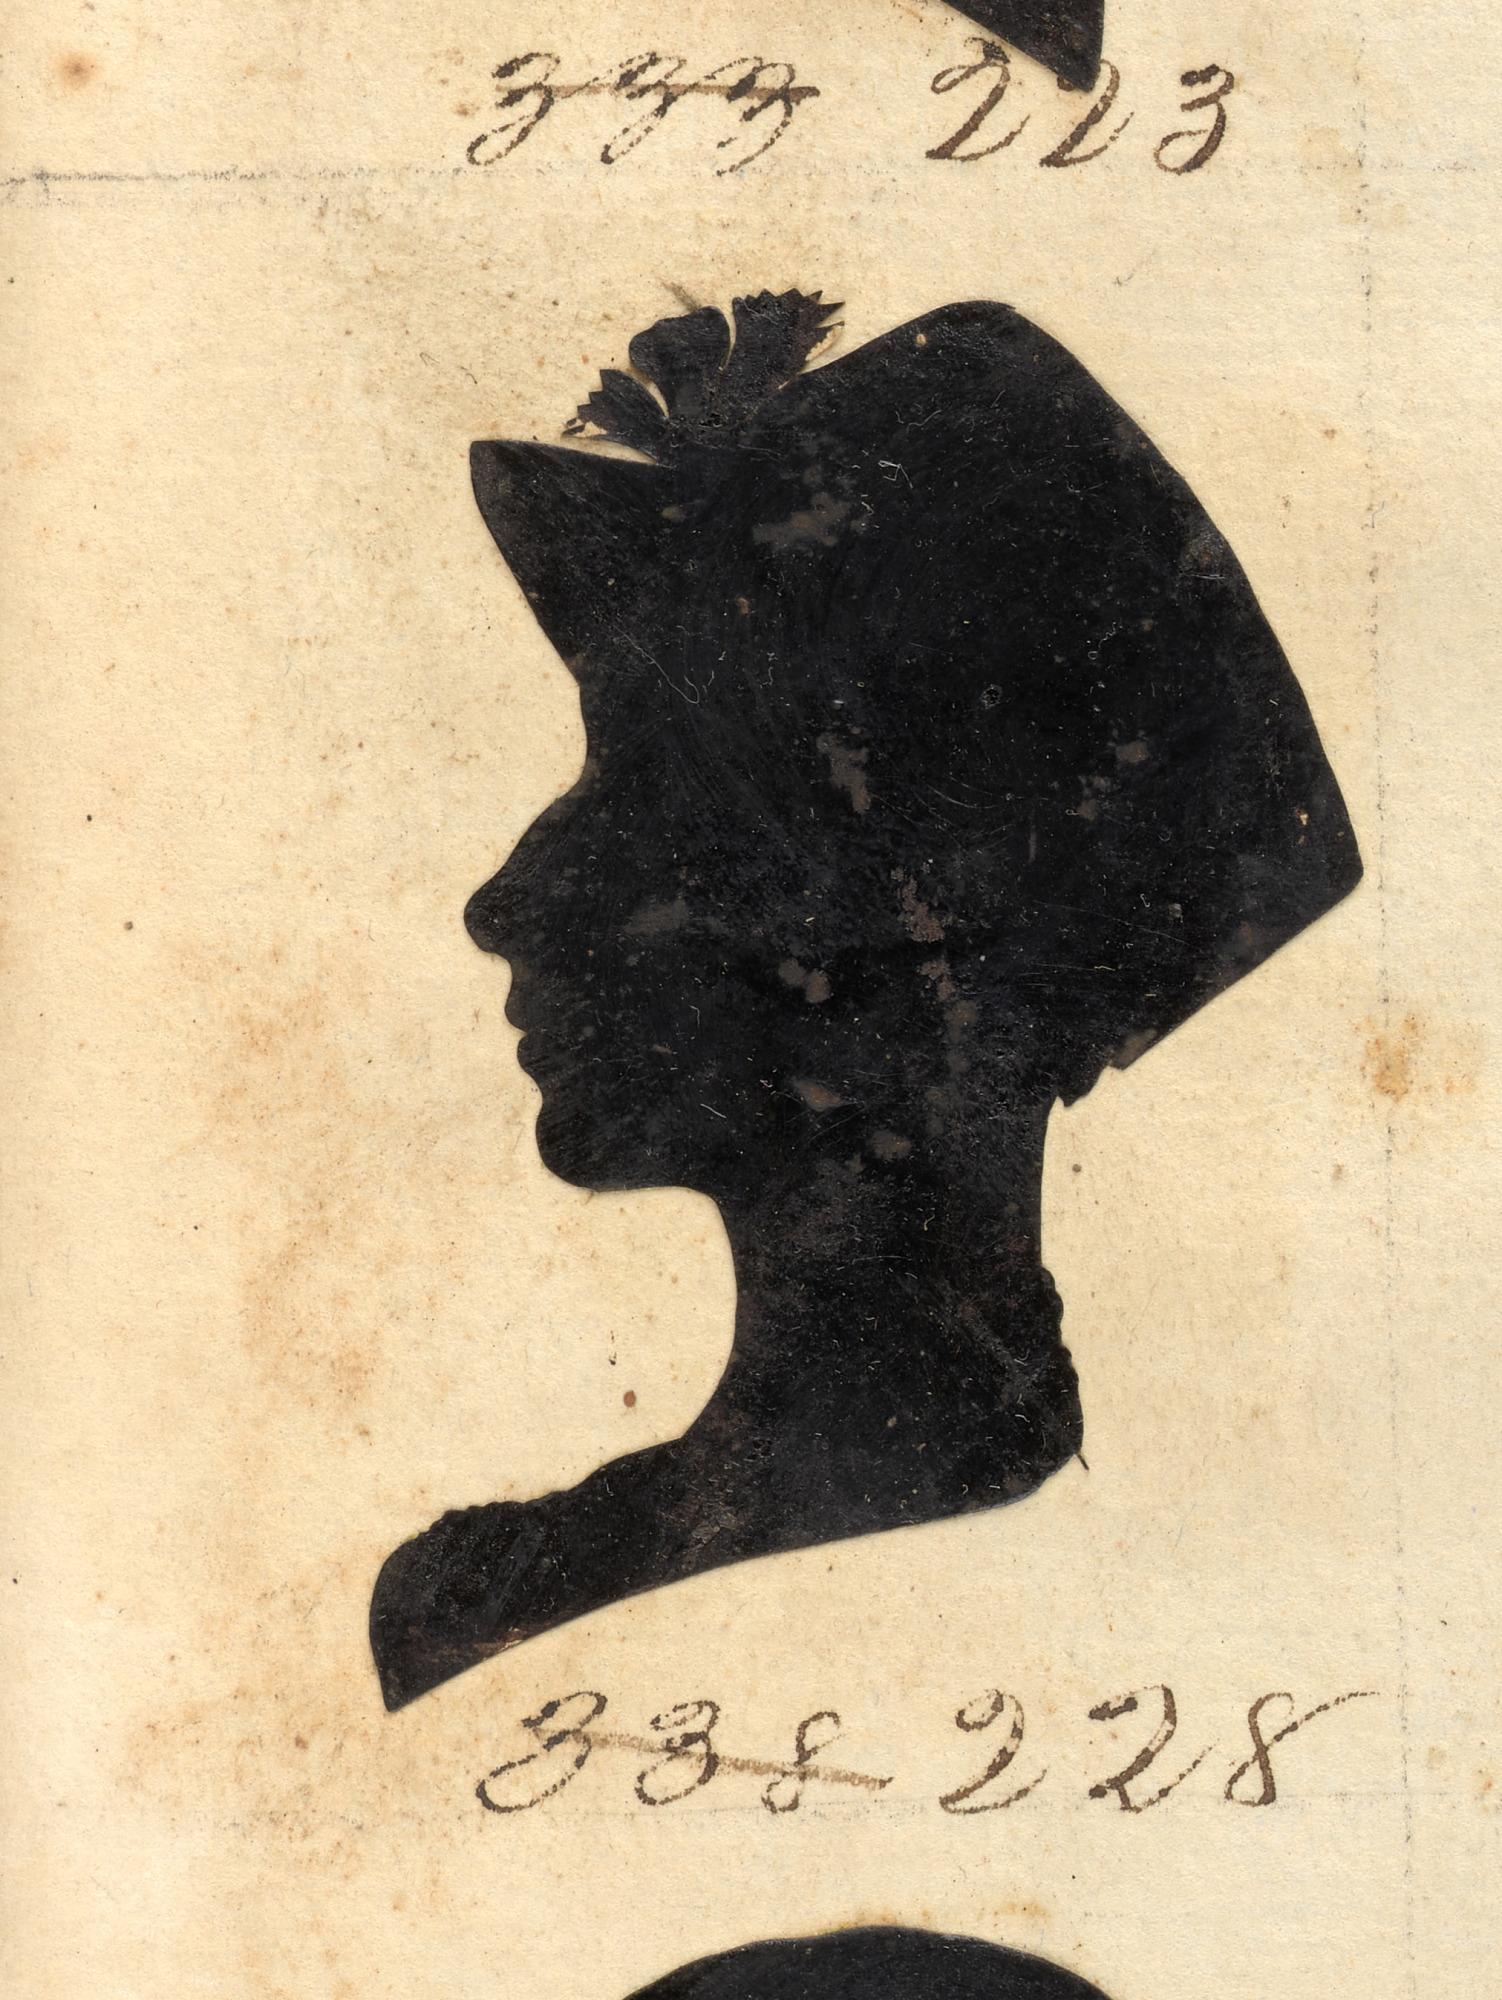 333 223
338 228